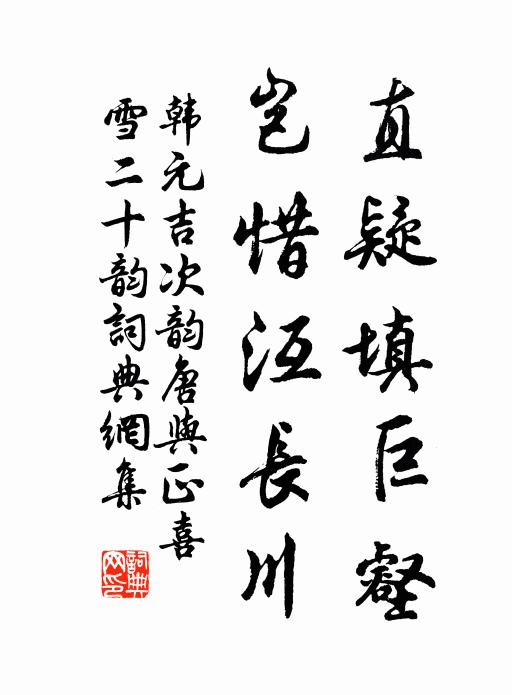 直疑填巨壑
岂惜沍長川
韩元吉次韵唐與正喜
雪二十韵詞典網集
詞典
网印